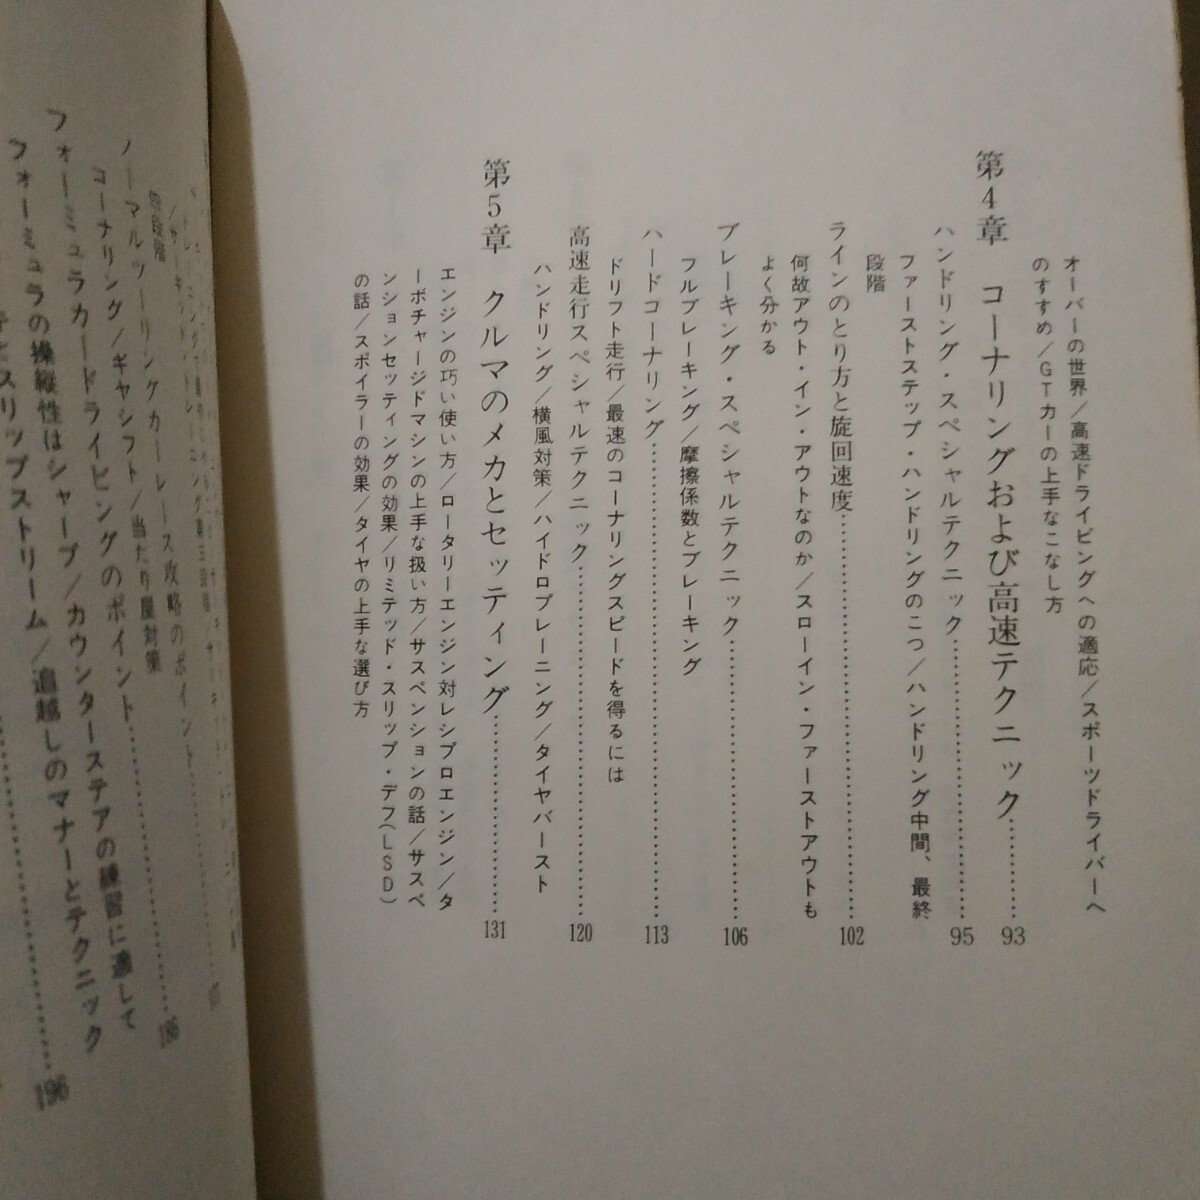 オーバーの世界/高速ドライビングへの適応/スポーツドライバーへ
のすすめ/GTカーの上手なこなし方
第4章 コーナリングおよび高速テクニック…………93
ハンドリング・スペシャルテクニック…………95
ファーストステップ・ハンドリングのこつ/ハンドリング中間、最終
段階
ラインのとり方と旋回速度…………102
何故アウト・イン・アウトなのか/スローイン・ファーストアウトも
よく分かる
ブレーキング・スペシャルテクニック…………106
フルブレーキング/摩擦係数とブレーキング
ハードコーナリング…………113
ドリフト走行/最速のコーナリングスピードを得るには
高速走行スペシャルテクニック…………120
ハンドリング/横風対策/ハイドロプレーニング/タイヤバースト
第5章 クルマのメカとセッティング…………131
エンジンの巧い使い方/ロータリーエンジン対レシプロエンジン/タ
ーボチャージドマシンの上手な扱い方/サスペンションの話/サスペ
ンションセッティングの効果/リミテッド・スリップ・デフ(LSD)
の話/スポイラーの効果/タイヤの上手な選び方
四段階
ノーマルツーリングカーレース攻略のポイント…………186
コーナリング/ギヤシフト/当たり屋対策
フォーミュラカードライビングのポイント…………196
フォーミュラの操縦性はシャープ/カウンターステアの練習に適して
スリップストリーム/追越しのマナーとテクニック